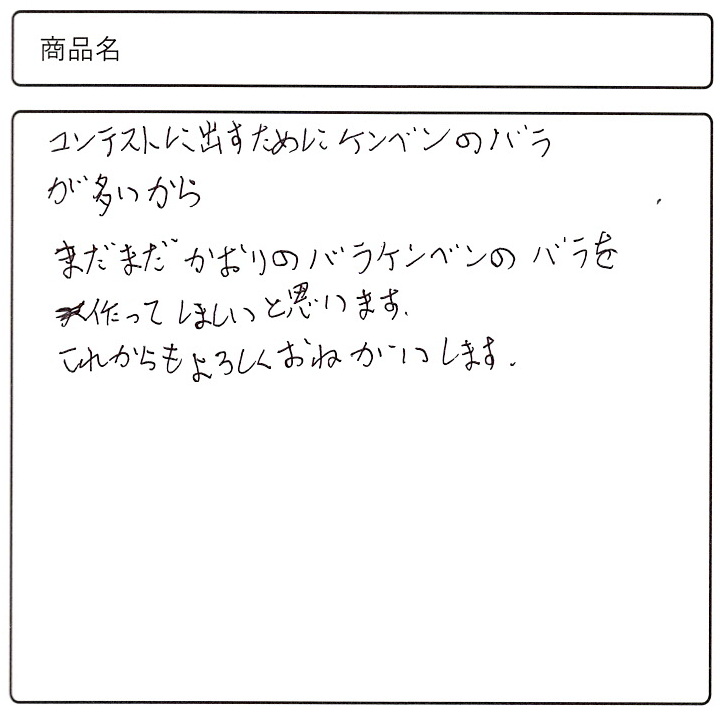 商品名
コンテストに出すためにケンベンのバラ
が多いから
まだまだかおりのバラケンベンのバラを
作ってほしいと思います.
これからもよろしくおねがいします.